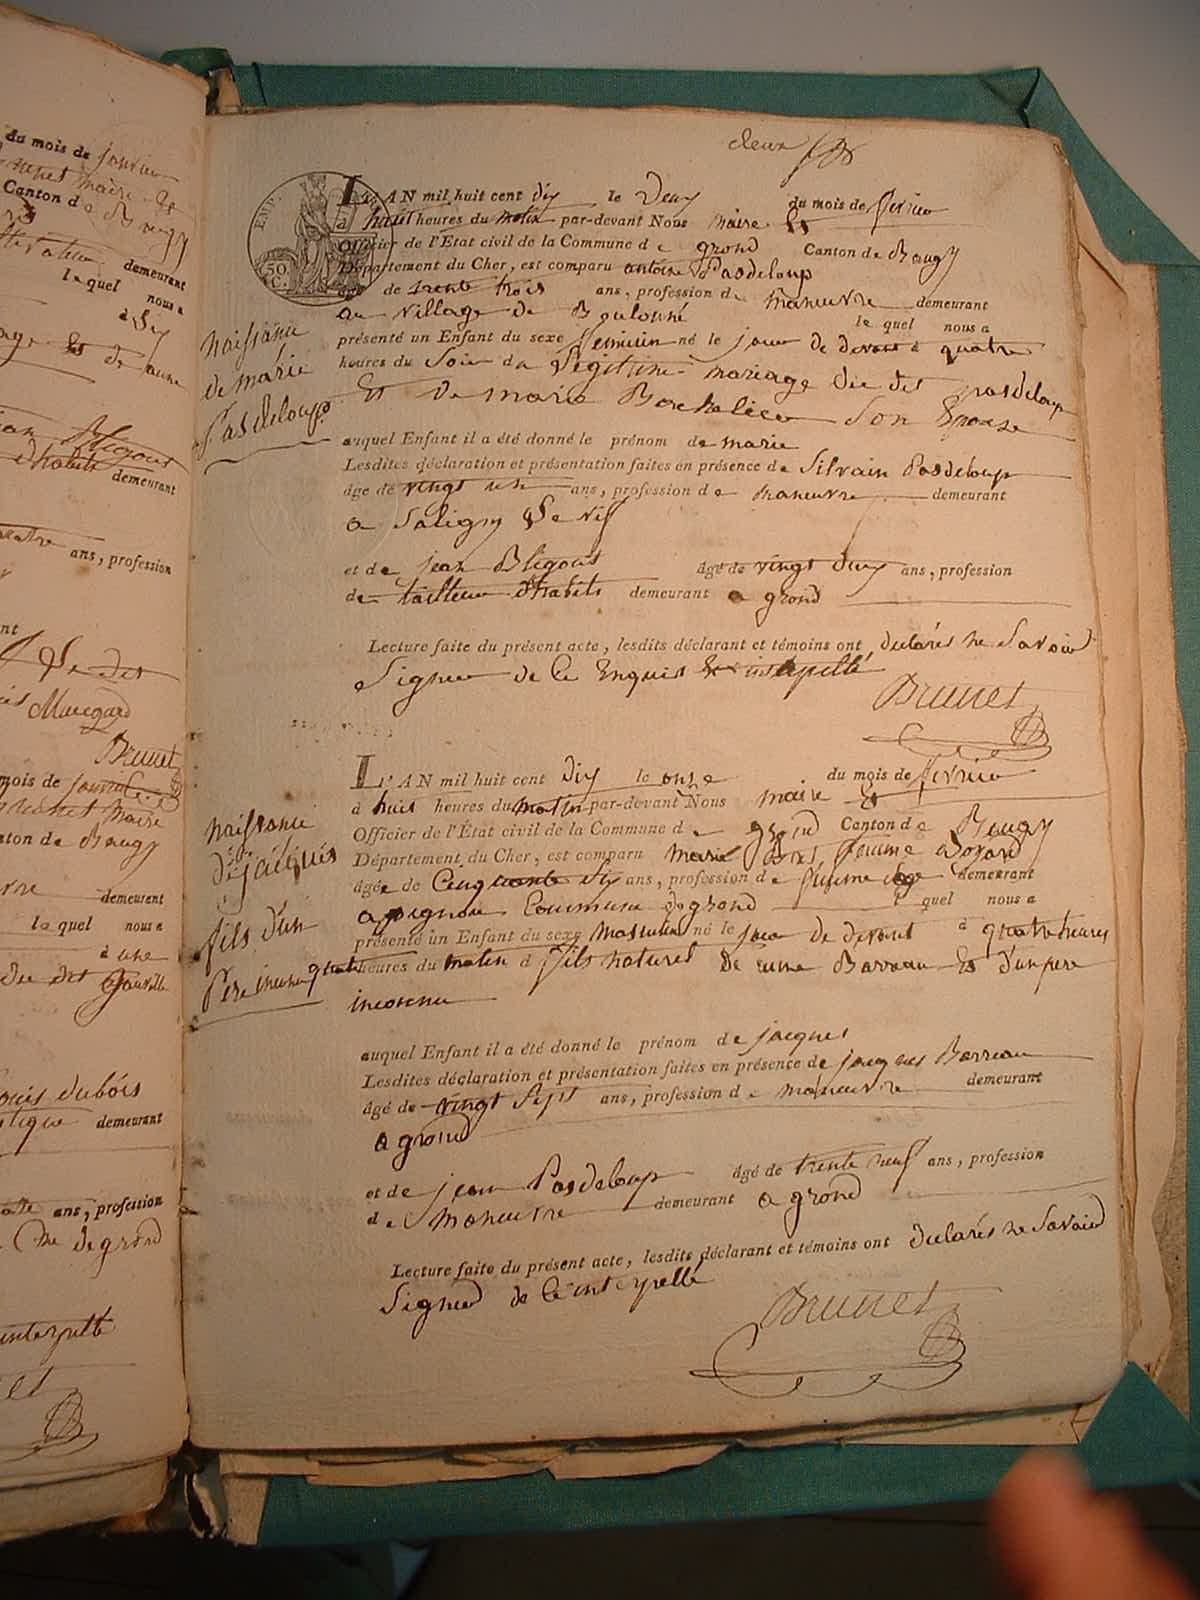 du mois de janvier
Canton de Baugy
demeurant
lequel nous a
à six
demeurant
quatre ans, profession
Maregard
Brunet
mois de
maire
Canton de Baugy
demeurant
lequel nous a
à une
du dit
Louis dubois
demeurant
ans, profession
Cne de grond
interpellé
deux
EMP.
50 C.
L'AN mil huit cent dix le Deux du mois de fevrier
à huit heures du matin par-devant Nous maire Et
Officier de l'État civil de la Commune de grond Canton de Baugy
Département du Cher, est comparu antoine Pasdeloup
âgé de trente trois ans, profession de maneuvre demeurant
au village de Boulonné lequel nous a
présenté un Enfant du sexe feminin né le jour de devant à quatre
heures du Soir du Légitime mariage du dit pasdeloup
Et De marie Son Epouse
auquel Enfant il a été donné le prénom de marie
Lesdites déclaration et présentation faites en présence de Silvain Pasdeloup
âgé de vingt un ans, profession de maneuvre demeurant
a Saligny Le vif
et de jean Bligout âgé de vingt deux ans, profession
de tailleur d'habits demeurant a grond
Lecture faite du présent acte, lesdits déclarant et témoins ont declarés ne Savoir
Signer de Ce Enquis Et interpellé
Brunet
naissance
de marie
Pasdeloup
L'AN mil huit cent Dix le onze du mois de fevrier
à huit heures du matin par-devant Nous maire Et
Officier de l'État civil de la Commune de grond Canton de Baugy
Département du Cher, est comparu marie femme
âgée de Cinquante Six ans, profession de femme demeurant
a pignou Commune de grond quel nous a
présenté un Enfant du sexe Masculin né le jour de devant à quatre heures
heures du matin d fils naturel De Barreau Et d'un pere
inconnu
auquel Enfant il a été donné le prénom de jacques
Lesdites déclaration et présentation faites en présence de jacques Barreau
âgé de vingt Sept ans, profession de maneuvre demeurant
a grond
et de jean Pasdeloup âgé de trente neuf ans, profession
de maneuvre demeurant a grond
Lecture faite du présent acte, lesdits déclarant et témoins ont declarés ne Savoir
Signer de Ce interpellé
Brunet
naissance
de jacques
fils d'un
Pere inconnu